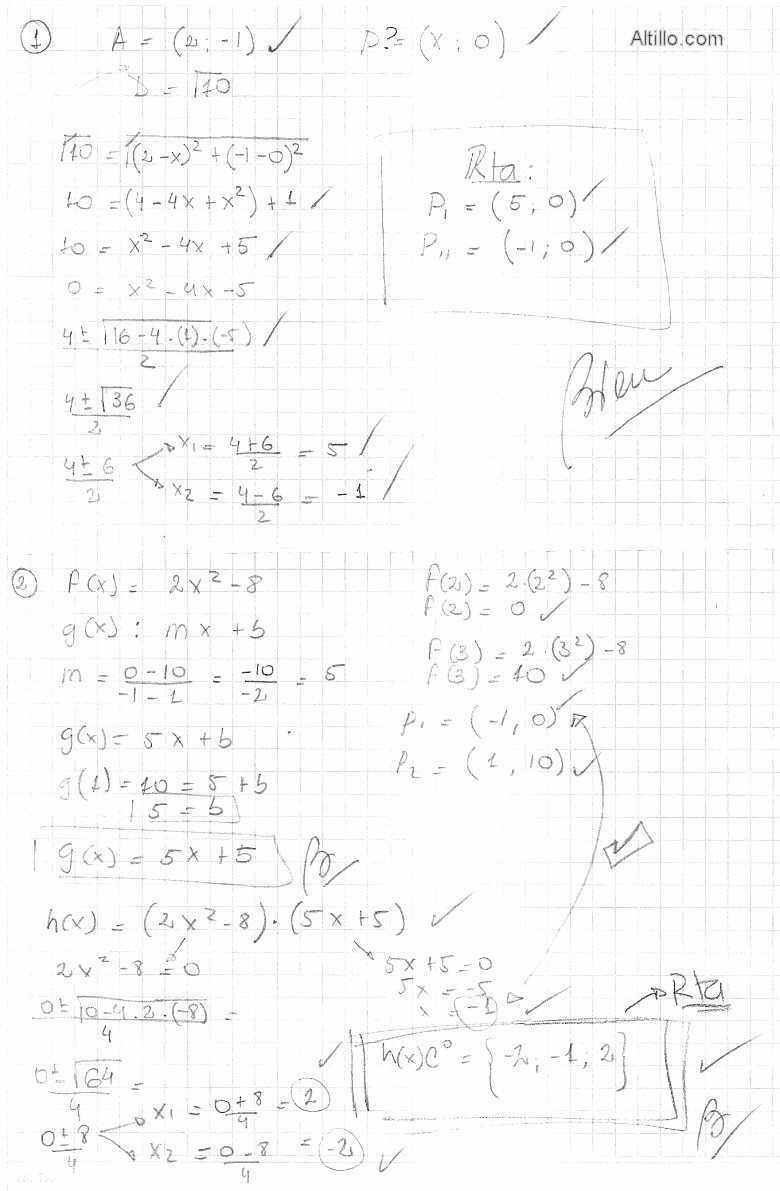 Altillo.com
1
A = (2 ; -1)
P? = (x ; 0)
D = √10
√10 = √(2-x)² + (-1-0)²
10 = (4 - 4x + x²) + 1
10 = x² - 4x + 5
0 = x² - 4x - 5
4 ± √16 - 4 · (1) · (-5)
2
4 ± √36
2
4 ± 6
2
x₁ = 4+6/2 = 5
x₂ = 4-6/2 = -1
Rta:
P₁ = (5 ; 0)
P₁₁ = (-1 ; 0)
Bien
2
f(x) = 2x² - 8
g(x) : mx + b
m = 0-10/-1-1 = -10/-2 = 5
g(x) = 5x + b
g(1) = 10 = 5 + b
5 = b
g(x) = 5x + 5
B
f(2) = 2·(2²) - 8
f(2) = 0
f(3) = 2·(3²) - 8
f(3) = 10
P₁ = (-1, 0)
P₂ = (1, 10)
h(x) = (2x² - 8) · (5x + 5)
2x² - 8 = 0
0 ± √0 - 4.2.(-8) =
4
0 ± √64 =
4
0 ± 8
4
x₁ = 0+8/4 = 2
x₂ = 0-8/4 = -2
5x + 5 = 0
5x = -5
x = -1
Rta
h(x) C⁰ = {-2 ; -1 ; 2}
B